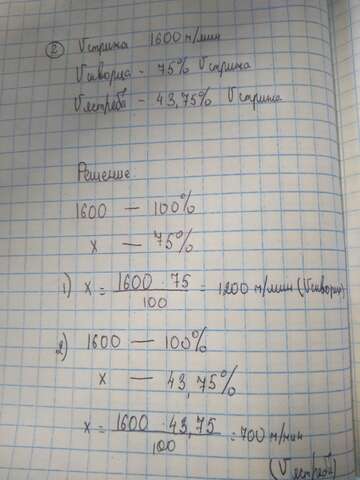 ② Vстрижа 1600 м/мин
Vскворца - 75% Vстрижа
Vястреба - 43,75% Vстрижа
Решение
1600 — 100%
x — 75%
1) x = 1600 · 75 / 100 = 1200 м/мин (Vскворца)
2) 1600 — 100%
x — 43,75%
x = 1600 · 43,75 / 100 = 700 м/мин
(Vястреба)